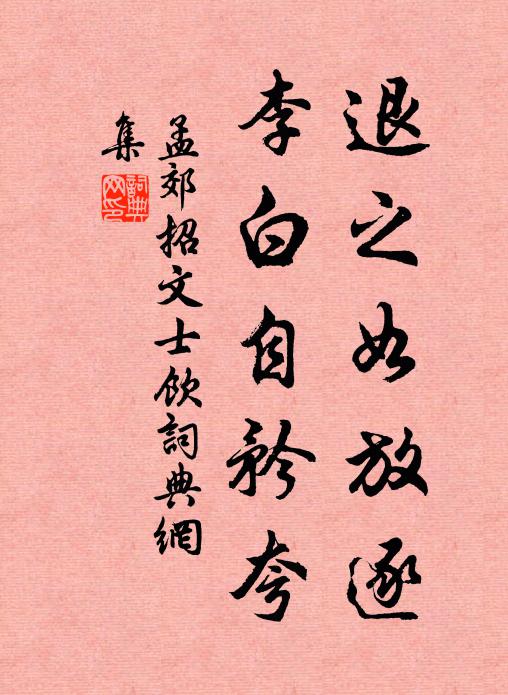 退之如放逐
李白自矜夸
孟郊招文士飲詞典網
集
詞典
网印